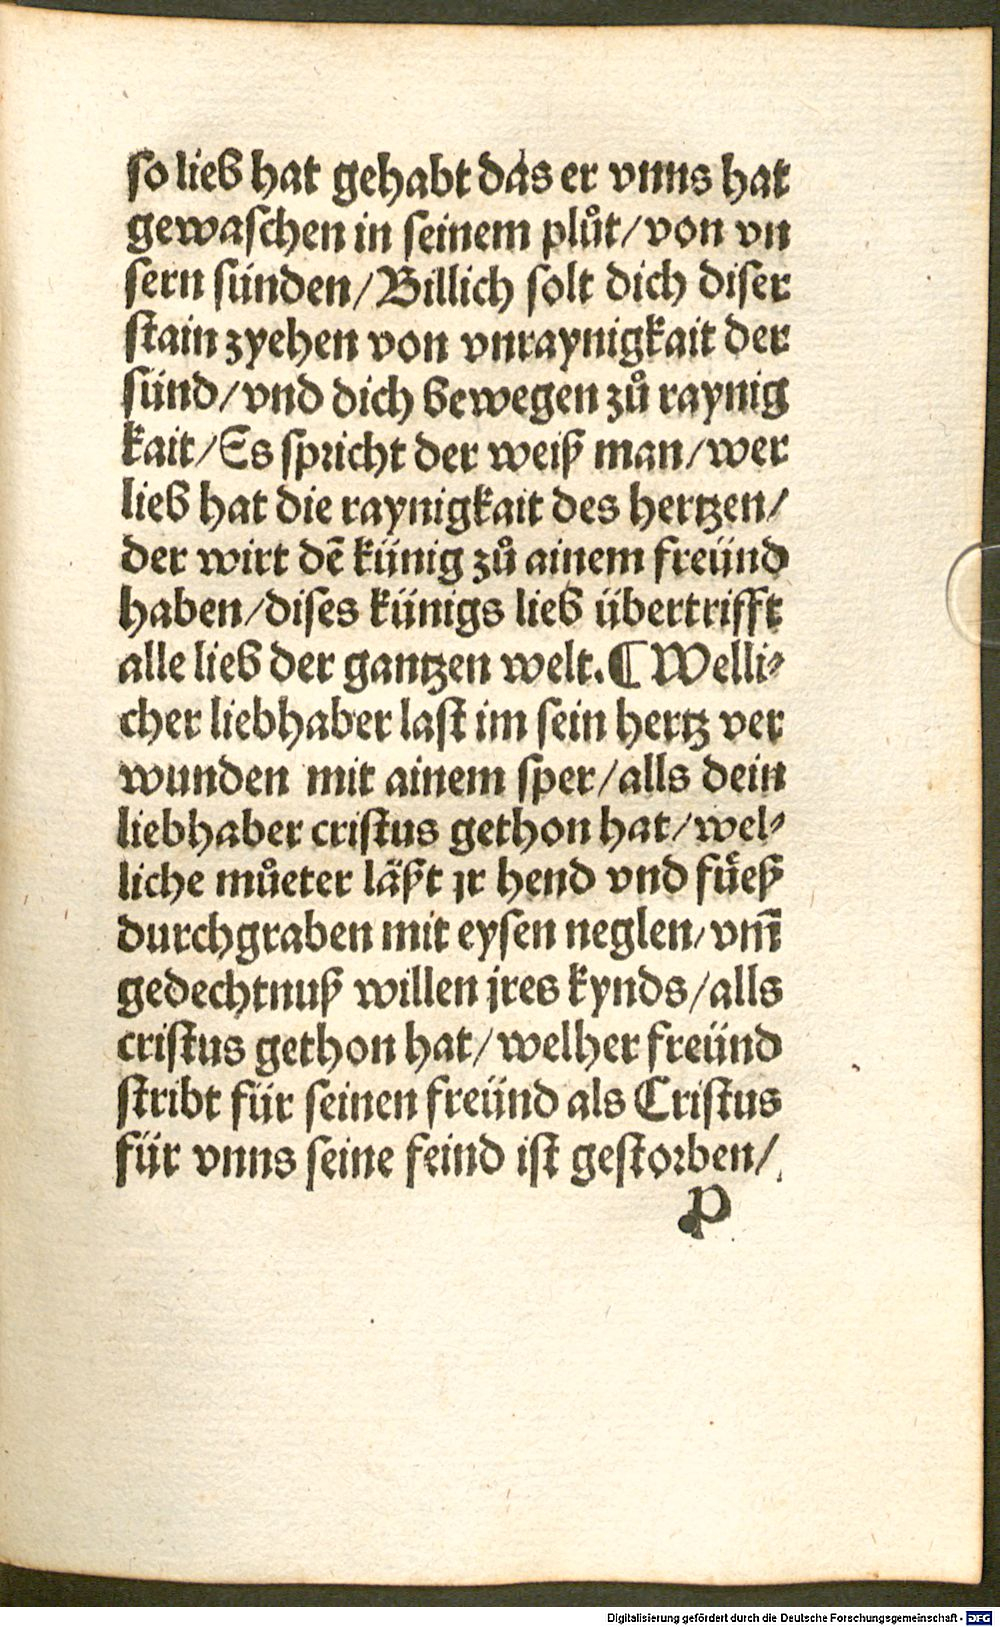 so lieb hat gehabt das er vnns hat
gewaschen in seinem plůt/von vn
sern sünden/Billich solt dich diser
stain zyehen von vnraynigkait der
sünd/vnd dich bewegen zů raynig
kait/Es spricht der weiß man/wer
lieb hat die raynigkait des hertzen/
der wirt dē künig zů ainem freünd
haben/dises künigs lieb übertrifft
alle lieb der gantzen welt.¶ Welli⸗
cher liebhaber last im sein hertz ver
wunden mit ainem sper/alls dein
liebhaber cristus gethon hat/wel⸗
liche můeter läßt jr hend vnd füeß
durchgraben mit eysen neglen/vm̄
gedechtnuß willen jres kynds/alls
cristus gethon hat/welher freünd
stribt für seinen freünd als Cristus
für vnns seine feind ist gestorben/
P
Digitalisierung gefördert durch die Deutsche Forschungsgemeinschaft - DFG